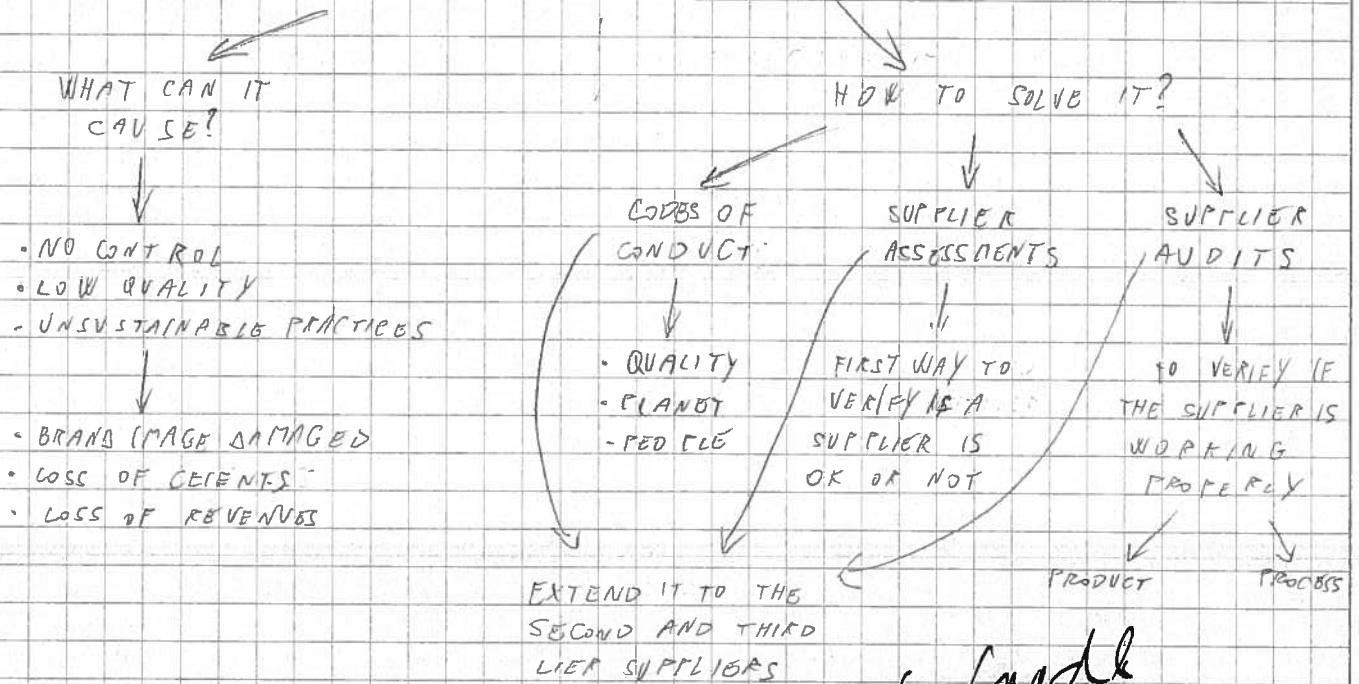 WHAT CAN IT
CAUSE?
• NO CONTROL
• LOW QUALITY
- UNSUSTAINABLE PRACTICES
• BRAND IMAGE DAMAGED
• LOSS OF CLIENTS
• LOSS OF REVENUES
HOW TO SOLVE IT?
CODES OF
CONDUCT
• QUALITY
• PLANET
- PEOPLE
SUPPLIER
ASSESSMENTS
FIRST WAY TO
VERIFY IS A
SUPPLIER IS
OK OR NOT
SUPPLIER
AUDITS
TO VERIFY IF
THE SUPPLIER IS
WORKING
PROPERLY
PRODUCT
PROCESS
EXTEND IT TO THE
SECOND AND THIRD
LIER SUPPLIERS